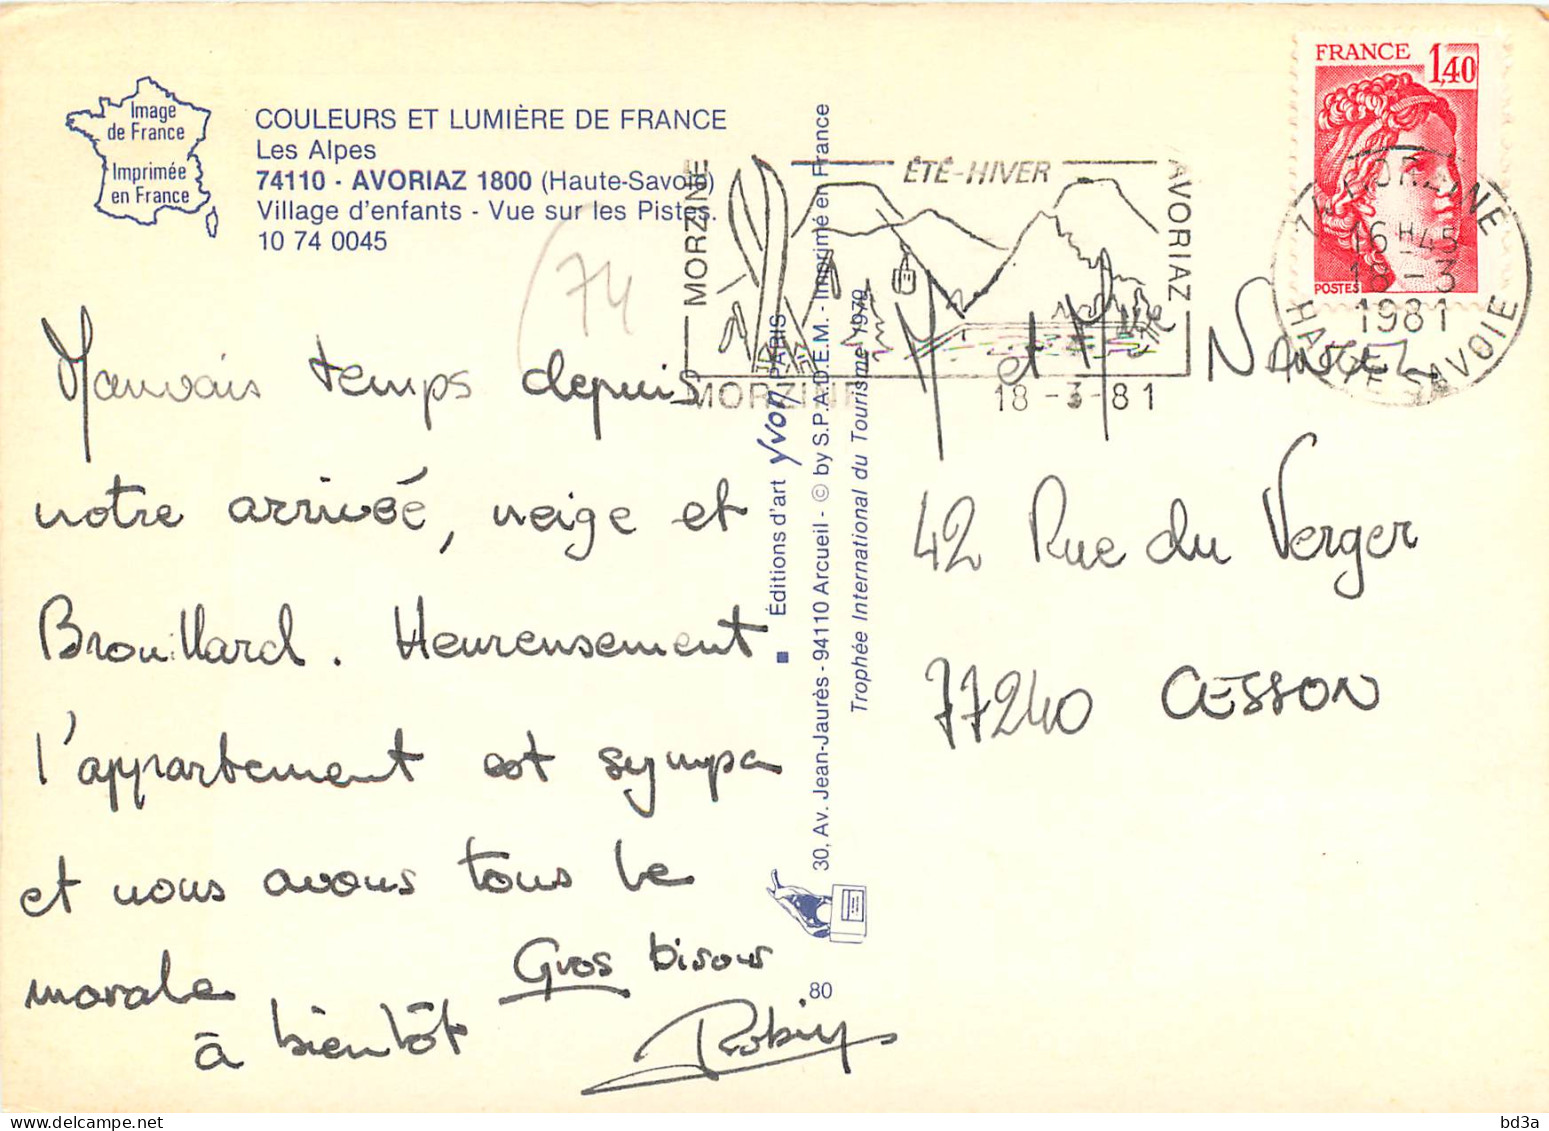 Image
de France
Imprimée
en France
COULEURS ET LUMIÈRE DE FRANCE
Les Alpes
74110 - AVORIAZ 1800 (Haute-Savoie)
Village d'enfants - Vue sur les Pistes.
10 74 0045
74
Mauvais temps depuis
notre arrivée, neige et
Brouillard. Heureusement
l'appartement est sympa
et nous avons tous le
morale
Gros bisous
à bientôt
Éditions d'art yvon PARIS
30, Av. Jean-Jaurès - 94110 Arcueil - © by S.P.A.D.E.M. - Imprimé en France
Trophée International du Tourisme 1970
80
MORZINE
ÉTÉ-HIVER
AVORIAZ
MORZINE
18 -3-81
FRANCE 1,40
POSTES
MORZINE
16 H 45
18 - 3
1981
HAUTE SAVOIE
M et Mme
42 Rue du Verger
77240 CESSON
bd3a